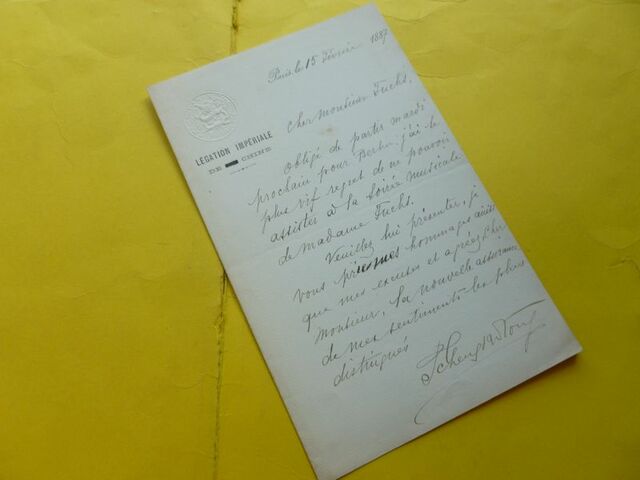 Paris, le 15 Février 1887
LÉGATION IMPÉRIALE
DE CHINE
Cher Monsieur Fuchs,
Obligé de partir mardi
prochain pour Berlin j'ai le
plus vif regret de ne pouvoir
assister à la Soirée Musicale
de Madame Fuchs.
Veuillez lui présenter, je
vous prie mes hommages ainsi
que mes excuses et agréez Cher
Monsieur, la nouvelle assurance
de mes sentiments les plus
distingués